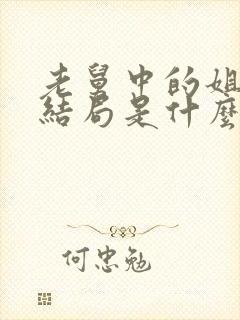 老舅中的姐
結局是什麼
何忠勉